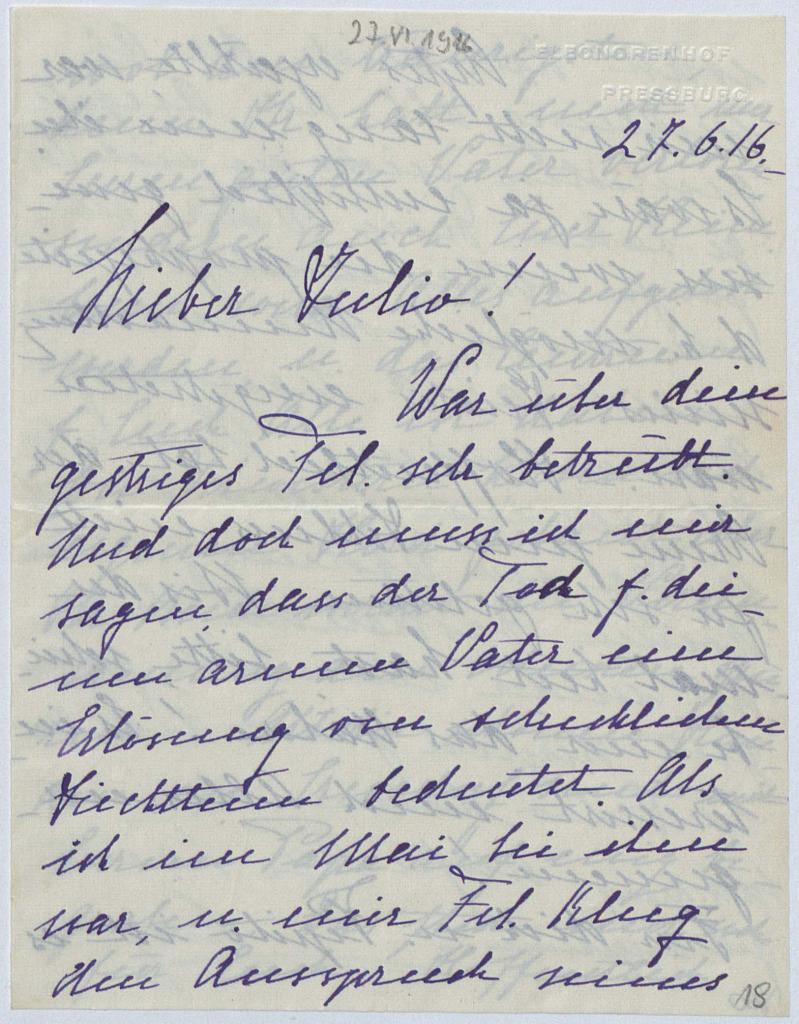 27 VI 1916
ELEONORENHOF
PRESSBURG.
27.6.16.
Lieber Julio!
War über dein
gestriges Tel. sehr betrübt.
Und doch muss ich mir
sagen, dass der Tod f. dei-
nen armen Vater eine
Erlösung von schrecklichem
Siechtum bedeutet. Als
ich im Mai bei ihm
war, u. mir Frl. Klug
den Ausspruch seines
18